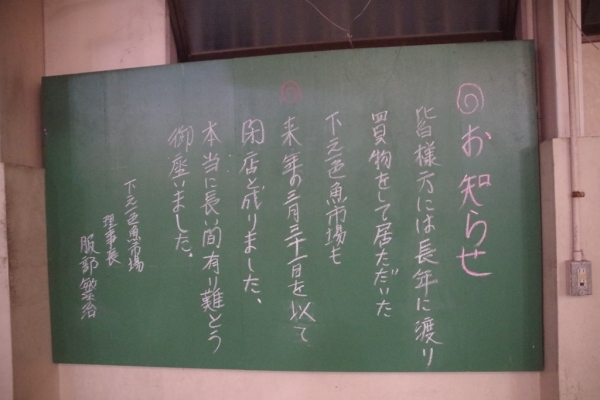 ◎お知らせ
皆様方には長年に渡り
買物をして居ただいた
下之一色魚市場も
◎来年の三月三十一日を以て
閉店と成りました、
本当に長い間有り難とう
御座いました。
下之一色魚市場
理事長
服部